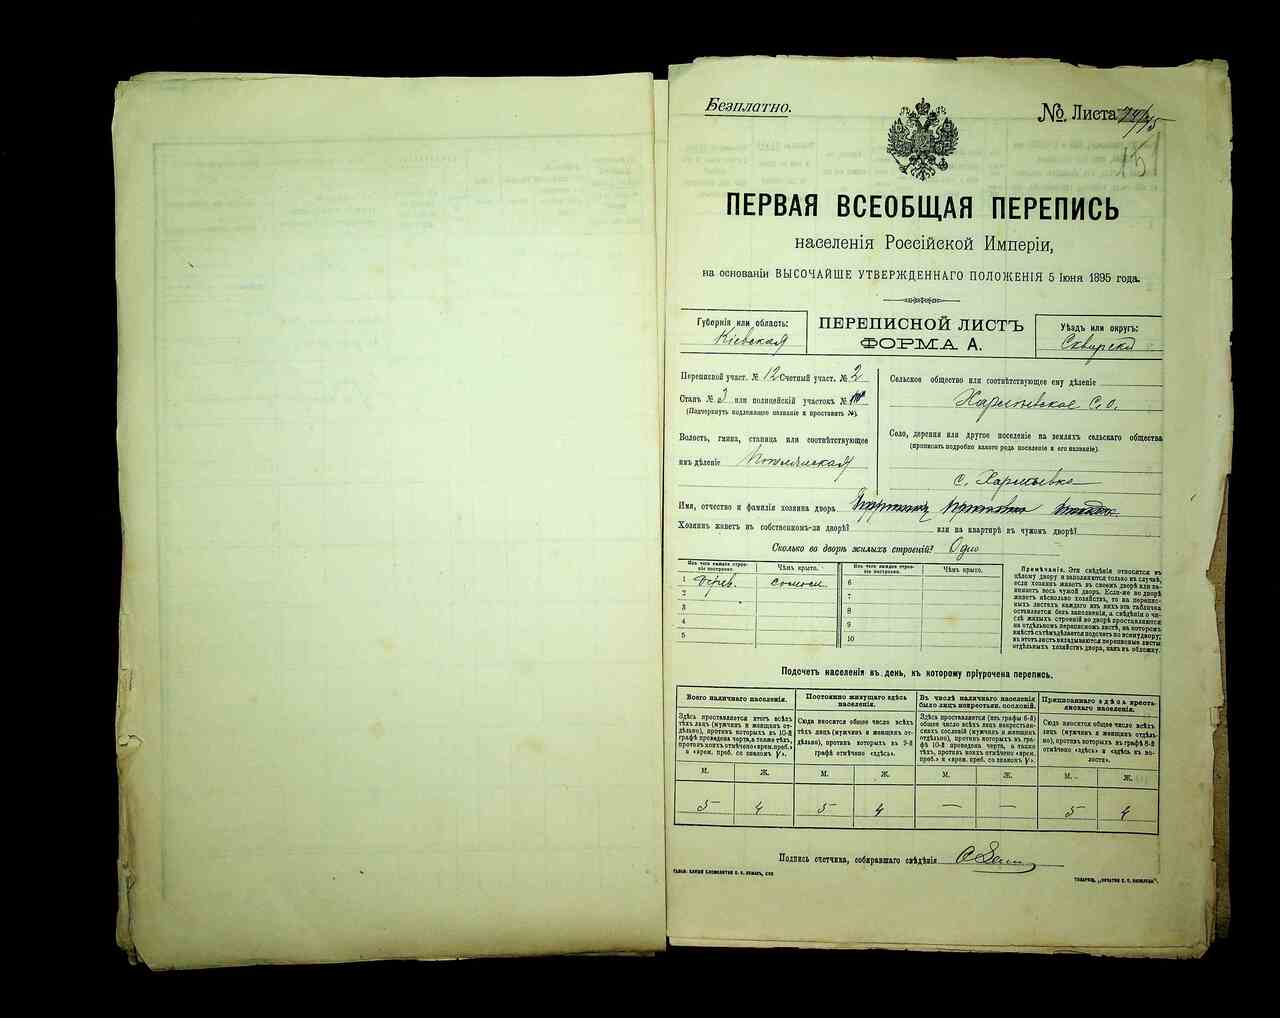 Безплатно.
№ Листа
ПЕРВАЯ ВСЕОБЩАЯ ПЕРЕПИСЬ
населенія Россійской Имперіи,
на основаніи ВЫСОЧАЙШЕ УТВЕРЖДЕННАГО ПОЛОЖЕНІЯ 5 Іюня 1895 года.
Губернія или область:
Кіевская
ПЕРЕПИСНОЙ ЛИСТЪ
ФОРМА А.
Уѣздъ или округъ:
Сквирскій
Переписной участ. № 12 Счетный участ. № 2
Станъ № 3 или полицейскій участокъ №
(Подчеркнуть подлежащее названіе и проставить №).
Волость, гмина, станица или соотвѣтствующее
имъ дѣленіе
Сельское общество или соотвѣтствующее ему дѣленіе
С. О.
Село, деревня или другое поселеніе на земляхъ сельскаго общества
(прописать подробно какого рода поселеніе и его названіе).
с.
Имя, отчество и фамилія хозяина двора
Хозяинъ живетъ въ собственномъ-ли дворѣ? или на квартирѣ въ чужомъ дворѣ?
Сколько во дворѣ жилыхъ строеній? Одно
Изъ чего каждое строеніе построено.
Чѣмъ крыто.
Изъ чего каждое строеніе построено.
Чѣмъ крыто.
1 Дерев. солом. 6
2 7
3 8
4 9
5 10
Примѣчанія. Эти свѣдѣнія относятся къ
цѣлому двору и заполняются только въ случаѣ,
если хозяинъ живетъ въ своемъ дворѣ или занимаетъ
весь чужой дворъ. Если-же во дворѣ
живетъ нѣсколько хозяйствъ, то на переписныхъ
листахъ каждаго изъ нихъ эта табличка
оставляется безъ заполненія, а свѣдѣнія о числѣ
жилыхъ строеній во дворѣ проставляются
на отдѣльномъ переписномъ листѣ, на которомъ
вмѣстѣ съ тѣмъ дѣлается подсчетъ по всему двору;
въ этотъ листъ вкладываются переписные листы
отдѣльныхъ хозяйствъ двора, какъ въ обложку.
Подсчетъ населенія въ день, къ которому пріурочена перепись.
Всего наличнаго населенія.
Здѣсь проставляется итогъ всѣхъ
лицъ (мужчинъ и женщинъ отдѣльно),
противъ которыхъ въ 10-й
графѣ проведена черта, а также тѣхъ,
противъ коихъ отмѣчено «врем. преб.»
и «врем. преб. со знакомъ V».
Постоянно живущаго здѣсь
населенія.
Сюда вносится общее число всѣхъ
лицъ (мужчинъ и женщинъ отдѣльно),
противъ которыхъ въ 9-й
графѣ отмѣчено «здѣсь».
Въ числѣ наличнаго населенія
было лицъ некрестьян. сословій.
Здѣсь проставляется (изъ графы 6-й)
общее число всѣхъ лицъ некрестьянскихъ
сословій (мужчинъ и женщинъ
отдѣльно), противъ которыхъ въ графѣ
10-й проведена черта, а также
тѣхъ, противъ коихъ отмѣчено «врем.
преб.» и «врем. преб. со знакомъ V».
Приписаннаго здѣсь крестьянскаго
населенія.
Сюда вносится общее число всѣхъ
лицъ (мужчинъ и женщинъ отдѣльно),
противъ которыхъ въ графѣ 8-й
отмѣчено «здѣсь» и «здѣсь въ волости».
М. Ж. М. Ж. М. Ж. М. Ж.
5 4 5 4 — — 5 4
Подпись счетчика, собиравшаго свѣдѣнія